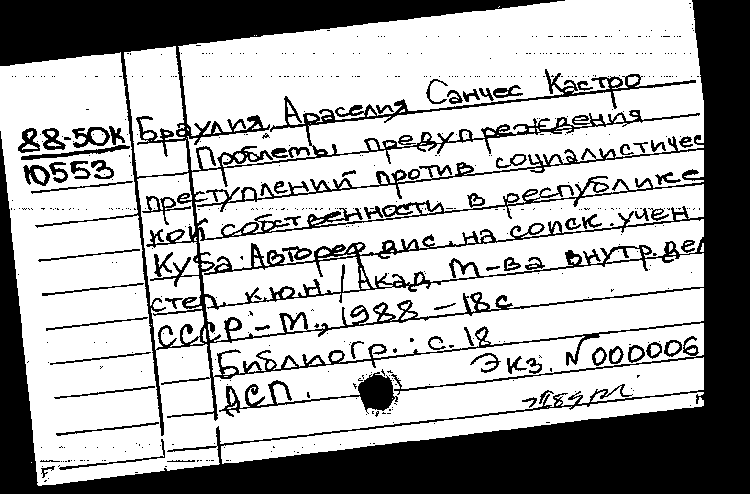 88-50К
10553
Браулия, Араселия Санчес Кастро
Проблемы предупреждения
преступлений против социалистичес
кой собственности в республике
Куба. Автореф. дис. на соиск. учен.
степ. к.ю.н. / Акад. М-ва внутр. дел
СССР. - М., 1988 - 18 с
Библиогр.: с. 18
ДСП. Экз. N 000006